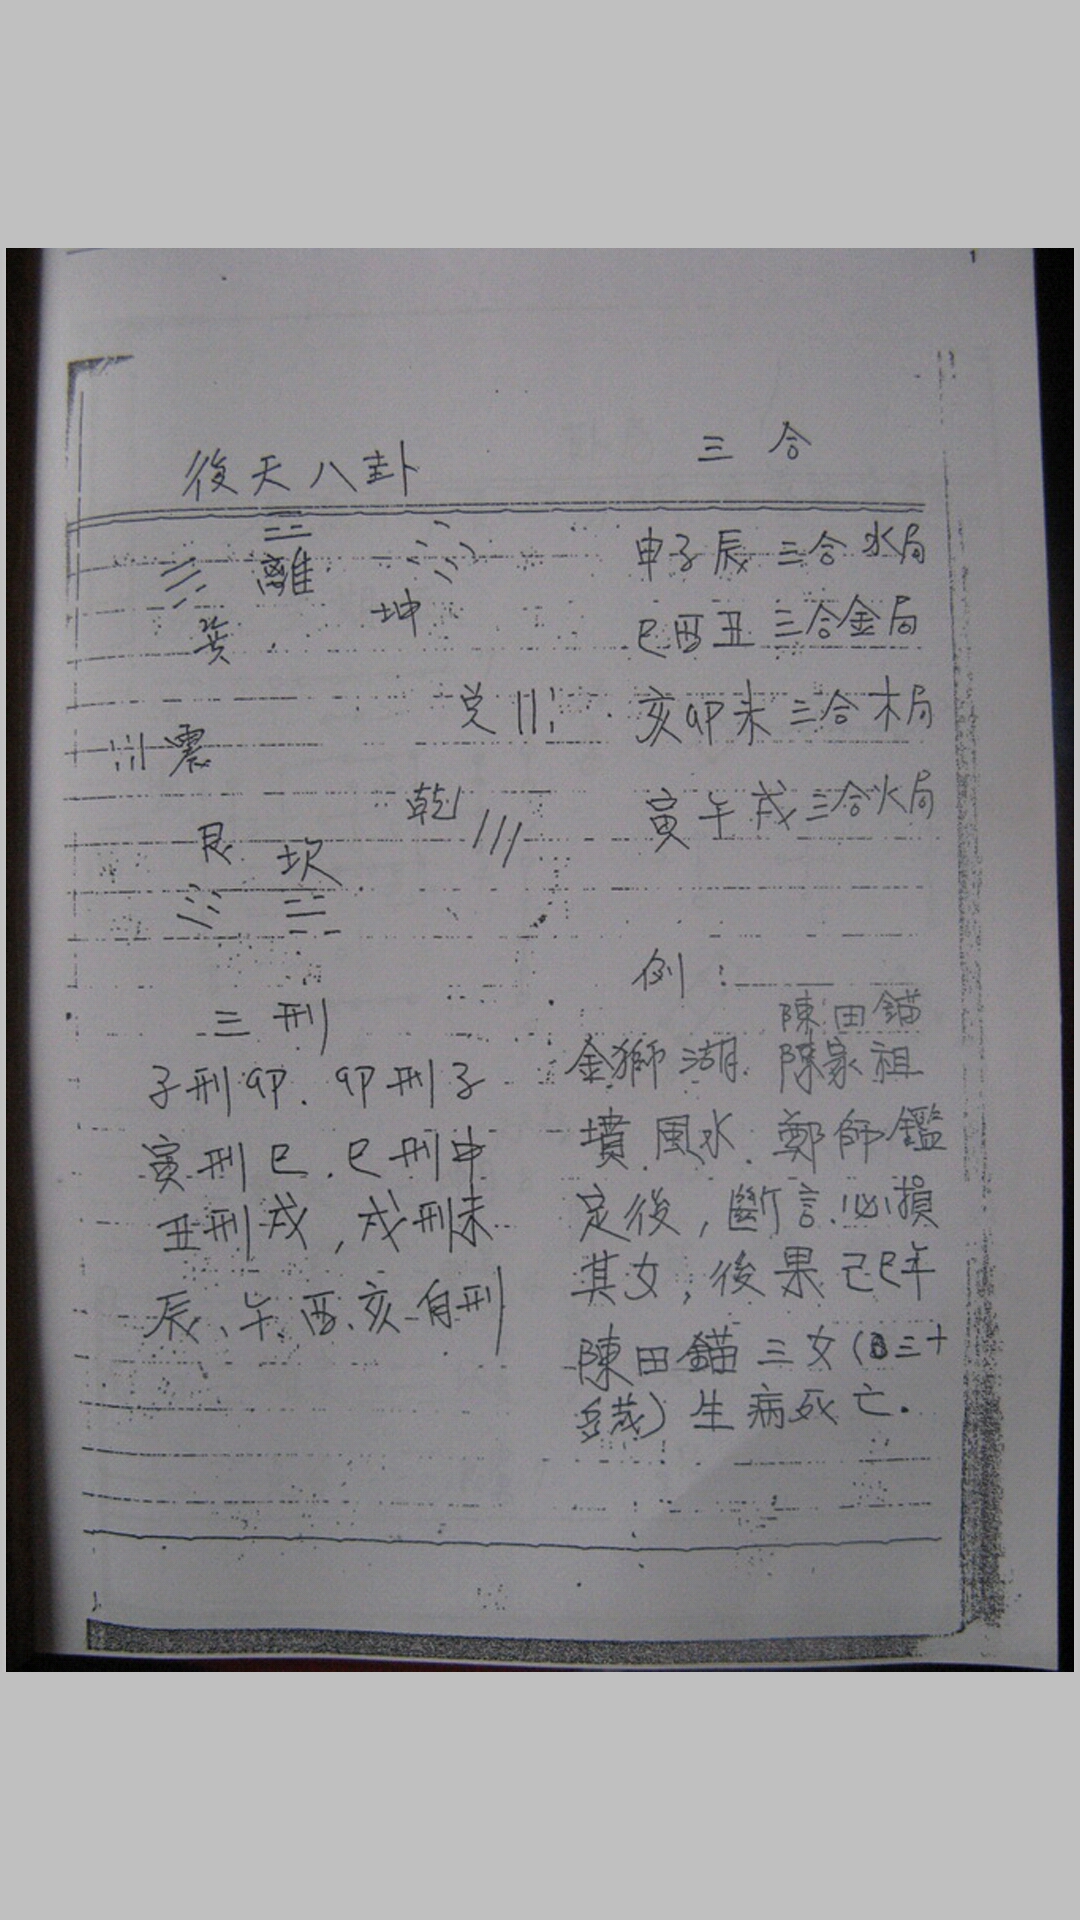 1
後天八卦
離
巽
坤
兌
震
乾
艮
坎
三刑
子刑卯.卯刑子
寅刑巳.巳刑申
丑刑戌,戌刑未
辰、午、酉、亥自刑
三合
申子辰三合水局
巳酉丑三合金局
亥卯未三合木局
寅午戌三合火局
例:
陳田錨
金獅湖.陳家祖
墳風水.鄭師鑑
定後,斷言必損
其女,後果己巳年
陳田錨三女(三十
多歲)生病死亡.